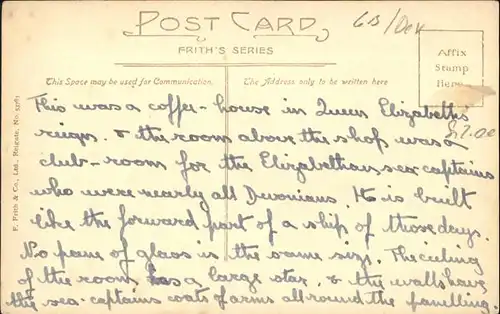 POST CARD
GB/Dev
FRITH'S SERIES
This Space may be used for Communication.
The Address only to be written here
Affix
Stamp
Here
£2.00
This was a coffee-house in Queen Elizabeth's
reign & the room above the shop was a
club-room for the Elizabethan sea captains
who were nearly all Devonians. It is built
like the forward part of a ship of those days.
No pane of glass is the same size. The ceiling
of the room has a large star, & the walls have
the sea-captains coats of arms all round the panelling.
F. Frith & Co., Ltd., Reigate. No.